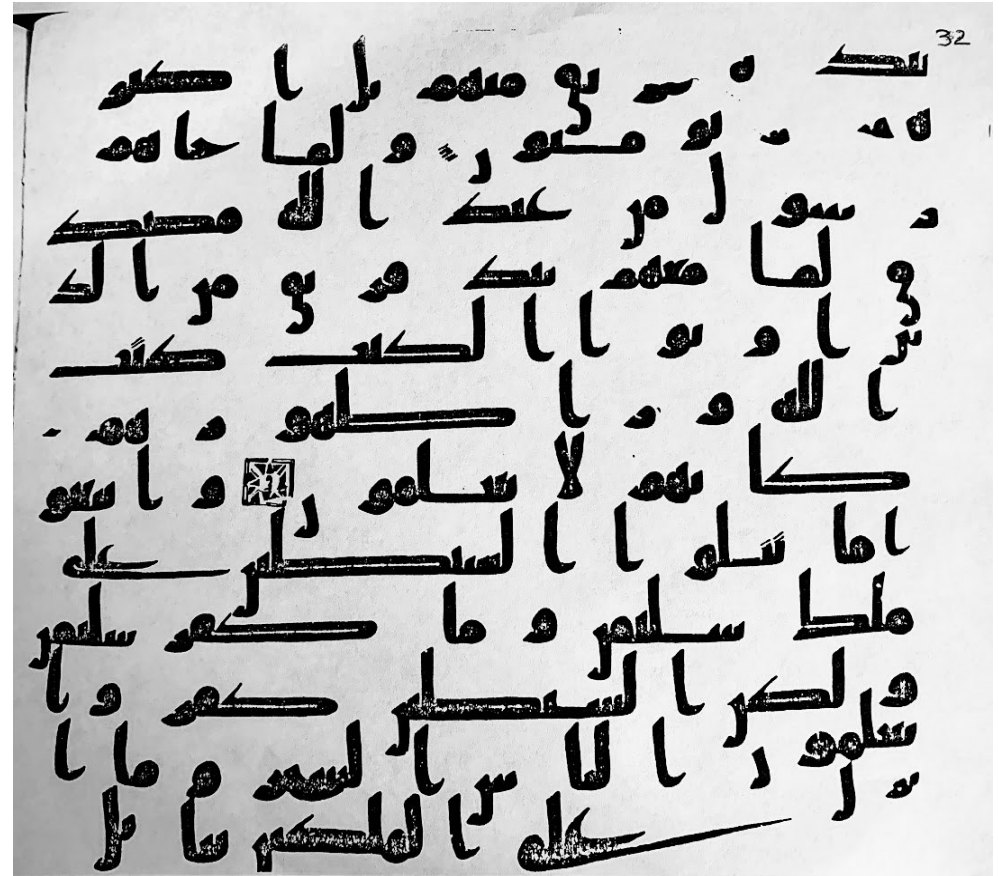 32
نبذ ه فر يق منهم بل ا كثر
هم لا يو منو ن و لما جاهم
ر سو ل من عند ا لله مصد
ق لما معهم نبذ فر يق من ا لذ
ين ا و تو ا ا لكتب كتب
ا لله و ر ا ظهو ر هم
كا نهم لا يعلمو ن و ا تبعو
ا ما تتلو ا ا لشيطين على
ملك سليمن و ما كفر سليمن
و لكن ا لشيطين كفر و ا
يعلمو ن ا لنا س ا لسحر و ما ا
نز ل على ا لملكين ببا بل